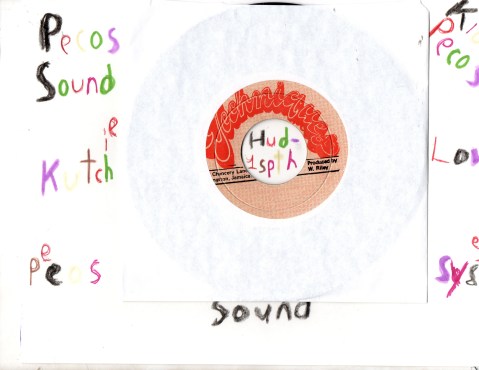 Pecos
Sound
ie
Kutch
e
Pecos
Techniques
Hud-
1spth
Chancery Lan
Jamaica
Produced by
W. Riley
Sound
Pecos
Lo
e
Sys